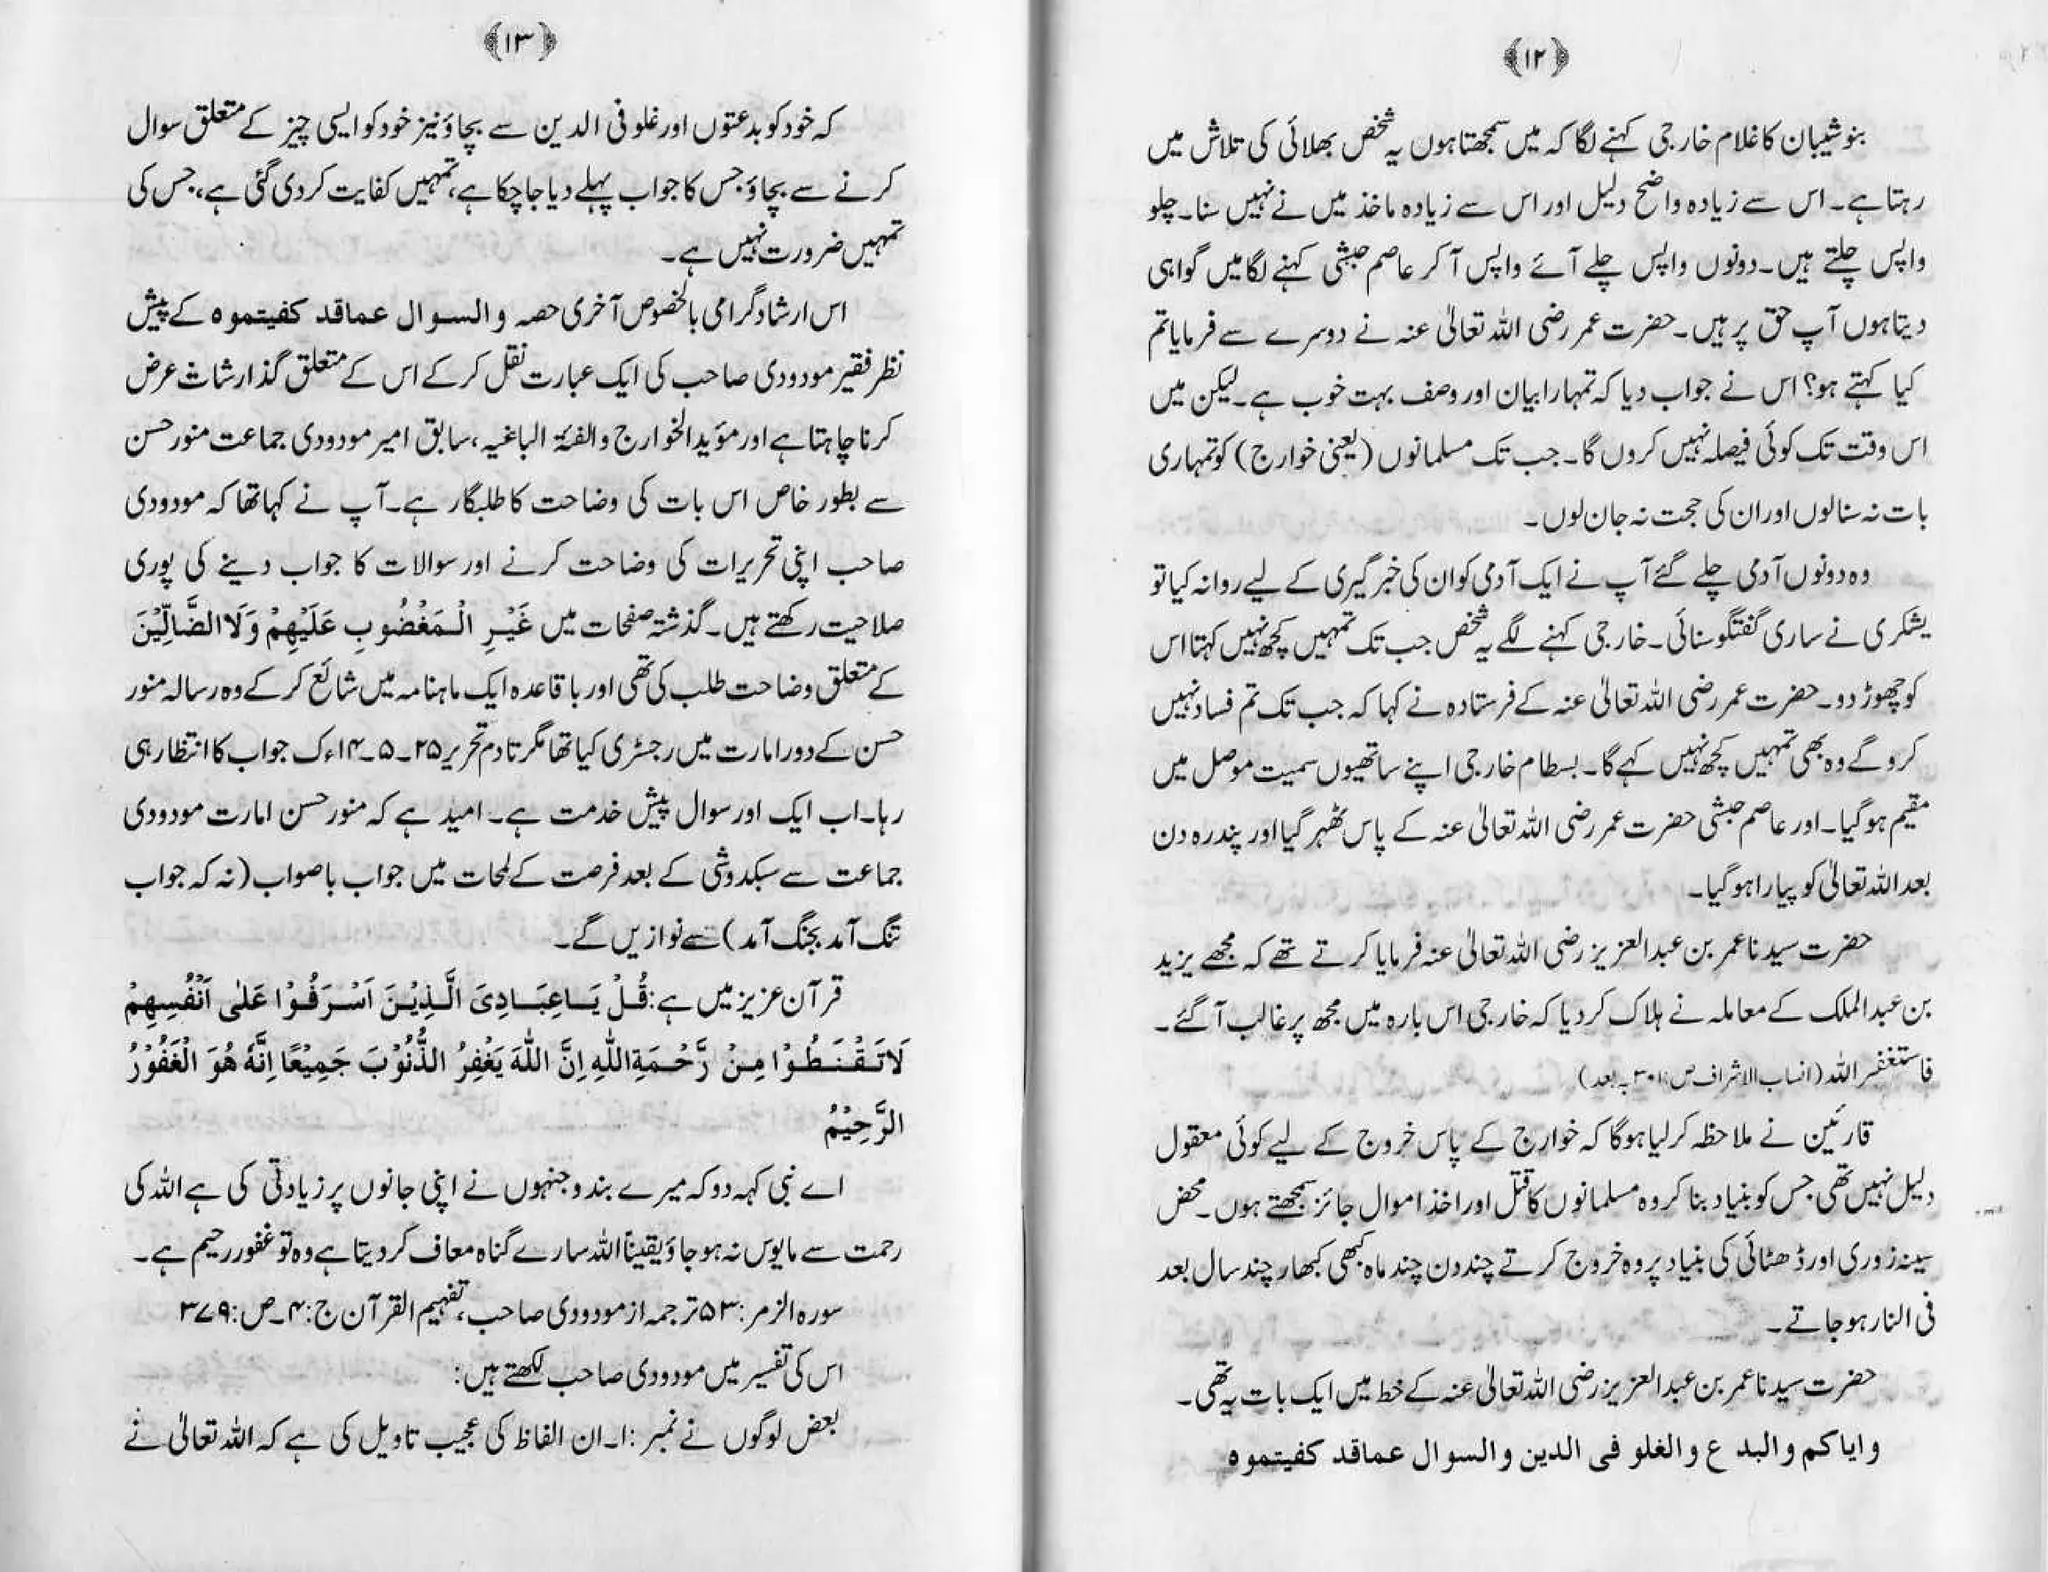 ﴿۱۲﴾
بنو شیبان کا غلام خارجی کہنے لگا کہ میں سمجھتا ہوں یہ شخص بھلائی کی تلاش میں
رہتا ہے۔ اس سے زیادہ واضح دلیل اور اس سے زیادہ ماخذ میں نے نہیں سنا۔ چلو
واپس چلتے ہیں۔ دونوں واپس چلے آئے واپس آ کر عاصم حبشی کہنے لگا میں گواہی
دیتا ہوں آپ حق پر ہیں۔ حضرت عمر رضی اللہ تعالیٰ عنہ نے دوسرے سے فرمایا تم
کیا کہتے ہو؟ اس نے جواب دیا کہ تمہارا بیان اور وصف بہت خوب ہے۔ لیکن میں
اس وقت تک کوئی فیصلہ نہیں کروں گا۔ جب تک مسلمانوں (یعنی خوارج) کو تمہاری
بات نہ سنا لوں اور ان کی حجت نہ جان لوں۔
وہ دونوں آدمی چلے گئے آپ نے ایک آدمی کو ان کی خبر گیری کے لیے روانہ کیا تو
یشکری نے ساری گفتگو سنائی۔ خارجی کہنے لگے یہ شخص جب تک تمہیں کچھ نہیں کہتا اس
کو چھوڑ دو۔ حضرت عمر رضی اللہ تعالیٰ عنہ کے فرستادہ نے کہا کہ جب تک تم فساد نہیں
کرو گے وہ بھی تمہیں کچھ نہیں کہے گا۔ بسطام خارجی اپنے ساتھیوں سمیت موصل میں
مقیم ہو گیا۔ اور عاصم حبشی حضرت عمر رضی اللہ تعالیٰ عنہ کے پاس ٹھہر گیا اور پندرہ دن
بعد اللہ تعالیٰ کو پیارا ہو گیا۔
حضرت سیدنا عمر بن عبدالعزیز رضی اللہ تعالیٰ عنہ فرمایا کرتے تھے کہ مجھے یزید
بن عبدالملک کے معاملہ نے ہلاک کر دیا کہ خارجی اس بارہ میں مجھ پر غالب آ گئے۔
فاستغفر اللہ (انساب الاشراف ص:۳۰۱ بہ بعد)
قارئین نے ملاحظہ کر لیا ہوگا کہ خوارج کے پاس خروج کے لیے کوئی معقول
دلیل نہیں تھی جس کو بنیاد بنا کر وہ مسلمانوں کا قتل اور اخذ اموال جائز سمجھتے ہوں۔ محض
سینہ زوری اور ڈھٹائی کی بنیاد پر وہ خروج کرتے چند دن چند ماہ کبھی کبھار چند سال بعد
فی النار ہو جاتے۔
حضرت سیدنا عمر بن عبدالعزیز رضی اللہ تعالیٰ عنہ کے خط میں ایک بات یہ تھی۔
وایاکم والبدع والغلو فی الدین والسوال عماقد کفیتموہ
﴿۱۳﴾
کہ خود کو بدعتوں اور غلو فی الدین سے بچاؤ نیز خود کو ایسی چیز کے متعلق سوال
کرنے سے بچاؤ جس کا جواب پہلے دیا جا چکا ہے، تمہیں کفایت کر دی گئی ہے، جس کی
تمہیں ضرورت نہیں ہے۔
اس ارشاد گرامی بالخصوص آخری حصہ والسوال عماقد کفیتموہ کے پیش
نظر فقیر مودودی صاحب کی ایک عبارت نقل کر کے اس کے متعلق گذارشات عرض
کرنا چاہتا ہے اور مؤید الخوارج والفئۃ الباغیہ، سابق امیر مودودی جماعت منور حسن
سے بطور خاص اس بات کی وضاحت کا طلبگار ہے۔ آپ نے کہا تھا کہ مودودی
صاحب اپنی تحریرات کی وضاحت کرنے اور سوالات کا جواب دینے کی پوری
صلاحیت رکھتے ہیں۔ گذشتہ صفحات میں غَیْرِ الْمَغْضُوبِ عَلَیْهِمْ وَلَا الضَّالِّیْنَ
کے متعلق وضاحت طلب کی تھی اور باقاعدہ ایک ماہنامہ میں شائع کر کے وہ رسالہ منور
حسن کے دور امارت میں رجسٹری کیا تھا مگر تادم تحریر ۲۵۔۵۔۱۴ء تک جواب کا انتظار ہی
رہا۔ اب ایک اور سوال پیش خدمت ہے۔ امید ہے کہ منور حسن امارت مودودی
جماعت سے سبکدوشی کے بعد فرصت کے لمحات میں جواب باصواب (نہ کہ جواب
تنگ آمد بجنگ آمد) سے نوازیں گے۔
قرآن عزیز میں ہے: قُلْ یَاعِبَادِیَ الَّذِیْنَ اَسْرَفُوْا عَلٰی اَنْفُسِهِمْ
لَا تَقْنَطُوْا مِنْ رَّحْمَةِ اللّٰهِ اِنَّ اللّٰهَ یَغْفِرُ الذُّنُوْبَ جَمِیْعًا اِنَّهٗ هُوَ الْغَفُوْرُ
الرَّحِیْمُ
اے نبی کہہ دو کہ میرے بندو جنہوں نے اپنی جانوں پر زیادتی کی ہے اللہ کی
رحمت سے مایوس نہ ہو جاؤ یقیناً اللہ سارے گناہ معاف کر دیتا ہے وہ تو غفور رحیم ہے۔
سورہ الزمر: ۵۳ ترجمہ از مودودی صاحب، تفہیم القرآن ج: ۴۔ ص: ۳۷۹
اس کی تفسیر میں مودودی صاحب لکھتے ہیں:
بعض لوگوں نے نمبر: ۱۔ ان الفاظ کی عجیب تاویل کی ہے کہ اللہ تعالیٰ نے